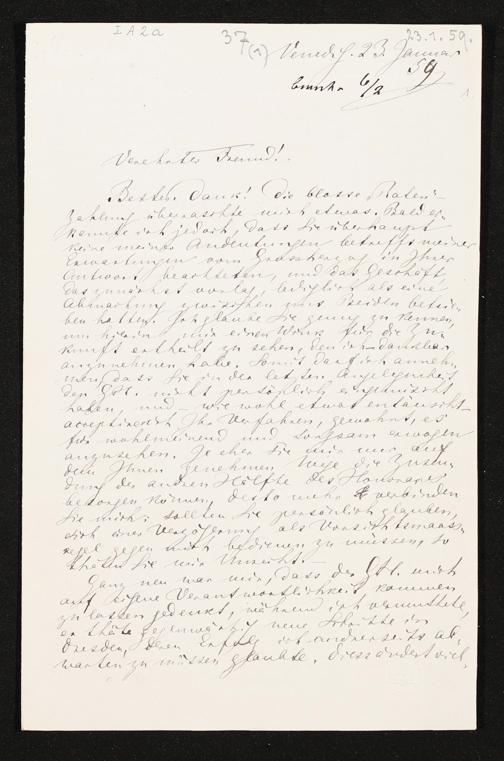 I A 2 a
37 (1)
23.1.59.
Venedig. 23. Januar
59
6/2
Verehrter Freund!
Besten Dank! Die blosse Raten-
zahlung überraschte mich etwas. Bald er-
kannte ich jedoch, dass Sie überhaupt
keine meiner Andeutungen betreffs meiner
Erwartungen vom Grossherzog in Ihrer
Antwort beachteten, und das Geschäft,
das zunächst vorlag, lediglich als eine
Abmachung zwischen uns Beiden betrie-
ben hatten. Ich glaube Sie genug zu kennen,
um hierin mir einen Wink für die Zu-
kunft ertheilt zu sehen, den ich dankbar
anzunehmen habe. Somit darf ich anneh-
men, dass Sie in der letzten Angelegenheit
den GH. nicht persönlich
haben, und – wie wohl etwas enttäuscht –
acceptire ich Ihr Verfahren, gewohnt, es
für wohlmeinend und sorgsam erwogen
anzusehen. Je eher Sie mir nun auf
dem Ihnen genehmen Wege die Zusen-
dung der andren Hälfte des Honorares
besorgen können, desto mehr verbinden
Sie mich; sollten Sie persönlich glauben,
sich einer Verzögerung als Vorsichtsmaass-
regel gegen mich bedienen zu müssen, so
thäten Sie mir Unrecht. –
Ganz neu war mir, dass der GH. mich
auf eigene Verantwortlichkeit kommen
zu lassen gedenkt, während ich vermuthete,
er thäte gegenwärtig neue Schritte in
Dresden, deren Erfolg ich andrerseits ab-
warten zu müssen glaubte. Diess ändert viel,